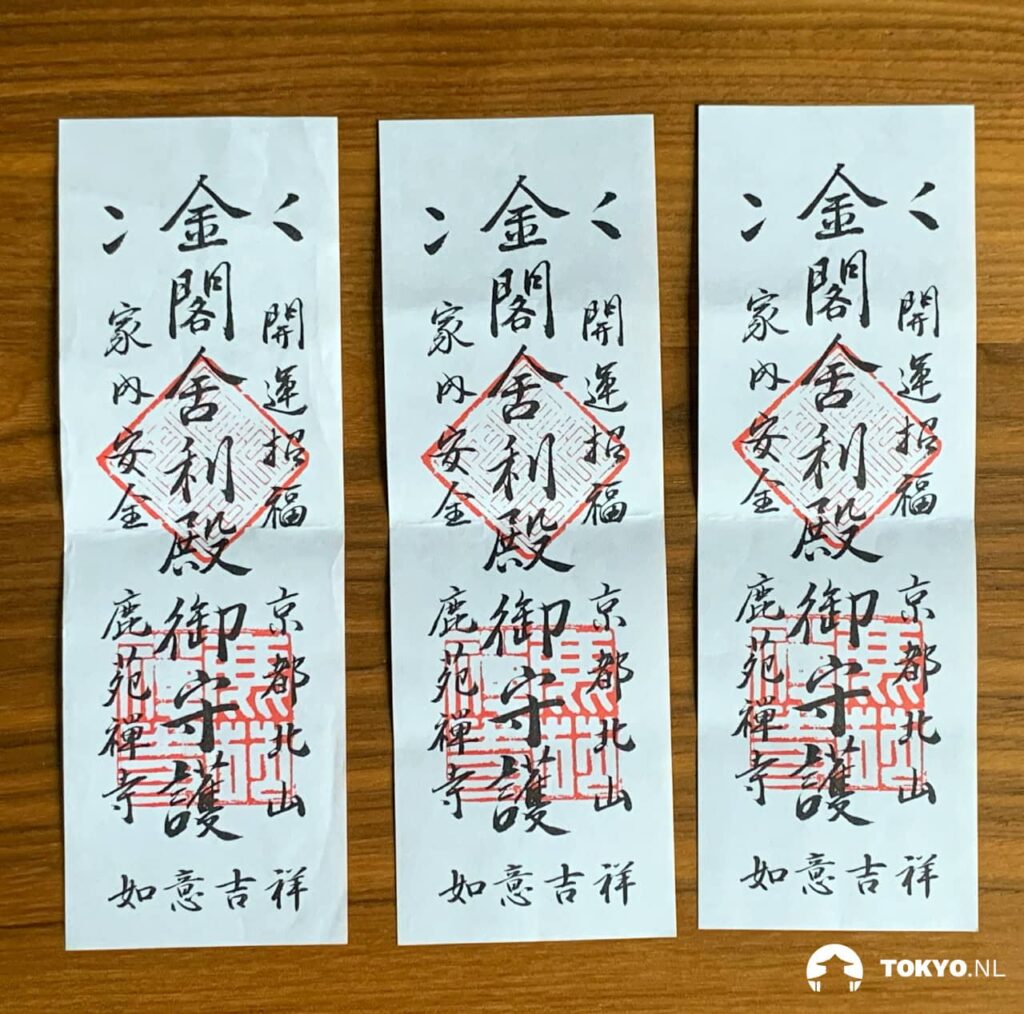 開運招福
京都北山
金閣舎利殿御守護
家内安全
鹿苑禅寺
如意吉祥
開運招福
京都北山
金閣舎利殿御守護
家内安全
鹿苑禅寺
如意吉祥
開運招福
京都北山
金閣舎利殿御守護
家内安全
鹿苑禅寺
如意吉祥
TOKYO.NL